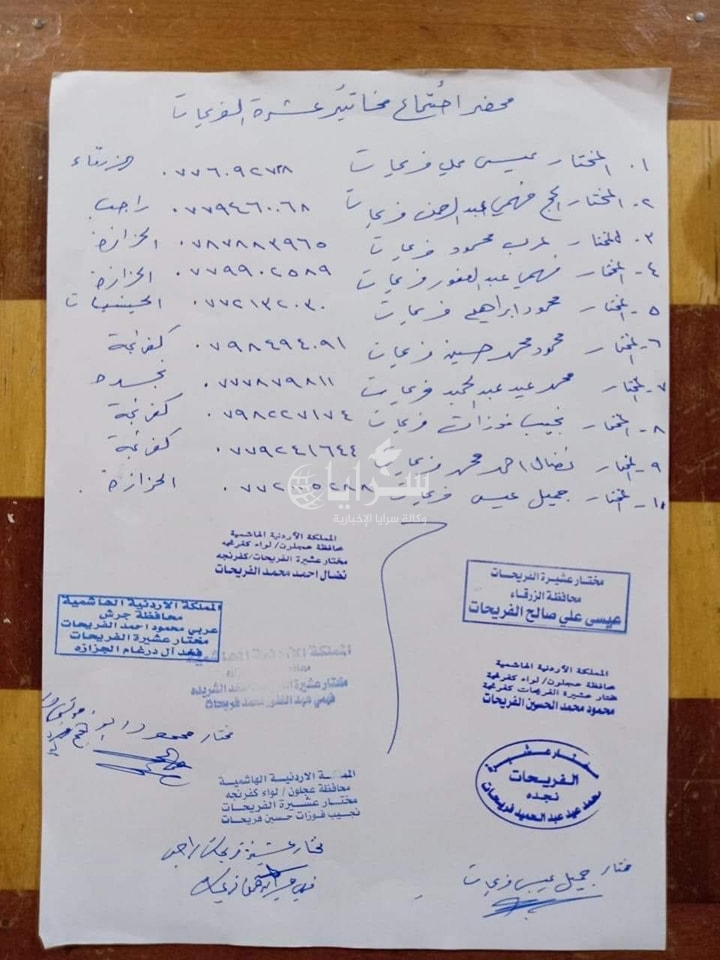 محضر اجتماع مخاتير عشيرة الفريحات
١. المختار عيسى علي فريحات ٠٧٧٦٠٩٢٧٢٨ الزرقاء
٢- المختار الحج فهمي عبدالرحمن فريحات ٠٧٧٩٤٦٠٠٦٨ راجب
٣. المختار عربي محمود فريحات ٠٧٨٧٨٨٣٩٦٥ الجزازة
٤- المختار فهمي عبدالغفور فريحات ٠٧٧٩٩٠٢٥٨٩ الجزازة
٥- المختار محمود ابراهيم فريحات ٠٧٧٢١٣٢٠٣٠ الحسينيات
٦- المختار محمود محمد حسين فريحات ٠٧٩٨٤٩٤٠٩١ كفرنجة
٧- المختار محمد عيد عبدالحميد فريحات ٠٧٧٧٨٧٩٨١١ نجده
٨- المختار نجيب فوزات فريحات ٠٧٩٨٢٢٧١٧٤ كفرنجة
٩- المختار نضال احمد محمد فريحات ٠٧٧٩٢٤١٦٤٤ كفرنجة
١٠- المختار جميل عيسى فريحات ٠٧٧٢١٠٥٢٨٨ الجزازة.
سرايا
وكالة سرايا الإخبارية
المملكة الأردنية الهاشمية
محافظة عجلون/ لواء كفرنجه
مختار عشيرة الفريحات/كفرنجه
نضال احمد محمد الفريحات
مختار عشيرة الفريحات
محافظة الزرقاء
عيسى علي صالح الفريحات
المملكة الاردنية الهاشمية
محافظة جرش
عربي محمود احمد الفريحات
مختار عشيرة الفريحات
فخذ آل درغام الجزازه
المملكة الاردنية الهاشمية
مختار عشيرة
فهمي عبد الغفور محمد فريحات
المملكة الأردنية الهاشمية
محافظة عجلون/ لواء كفرنجة
مختار عشيرة الفريحات كفرنجة
محمود محمد الحسين الفريحات
مختار محمود ابراهيم
مختار عشيرة
الفريحات
نجده
محمد عيد عبدالحميد فريحات
المملكة الاردنية الهاشمية
محافظة عجلون / لواء كفرنجه
مختار عشيرة الفريحات
نجيب فوزات حسين فريحات
مختار عشيرة فريحات راجب
مختار جميل عيسى فريحات